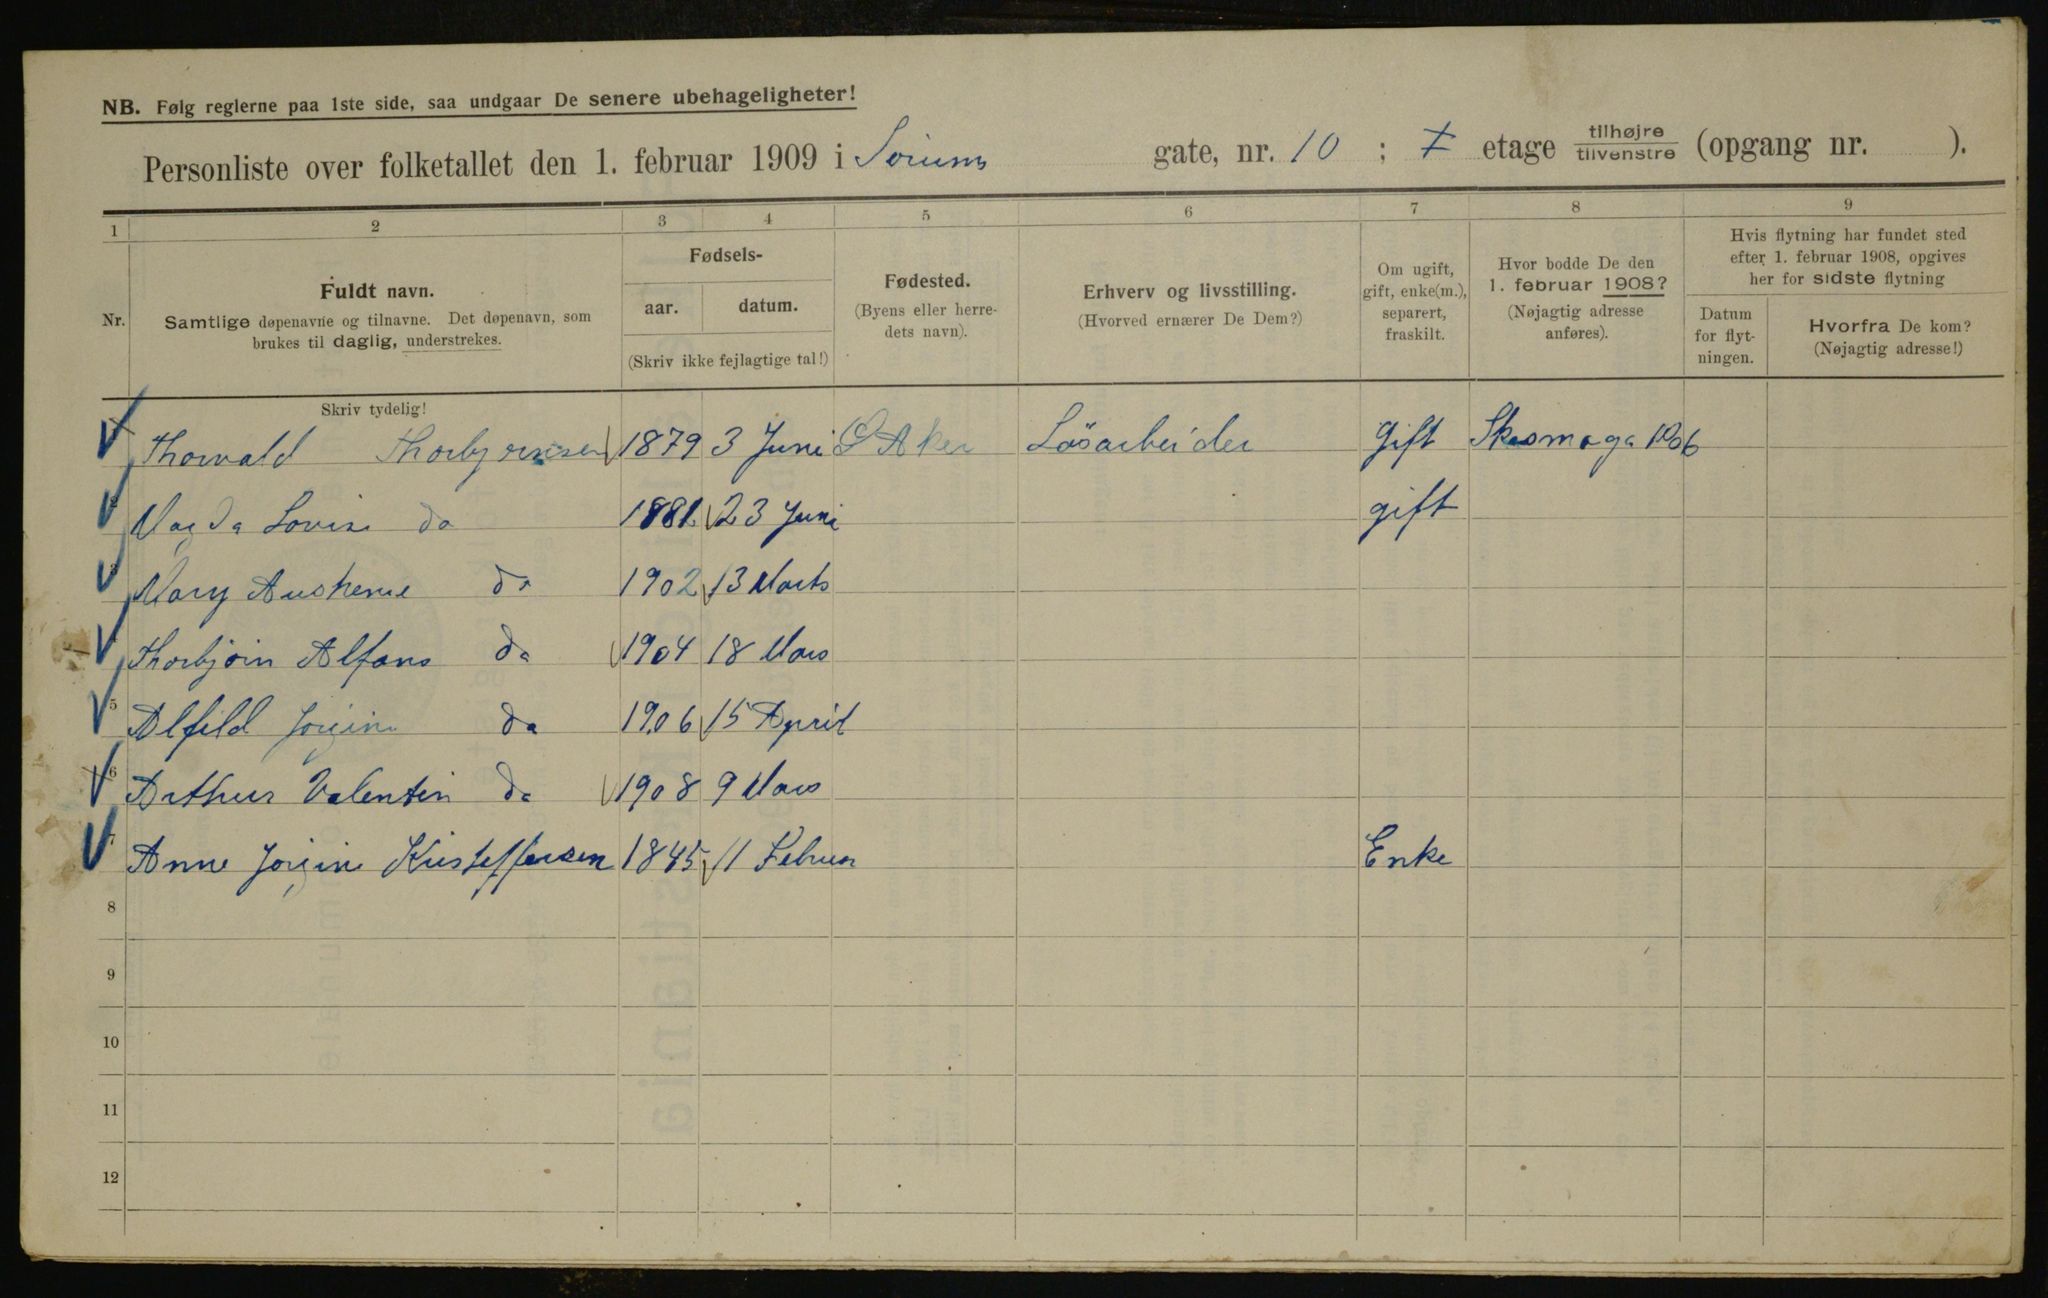 NB. Følg reglerne paa 1ste side, saa undgaar De senere ubehageligheter!
Personliste over folketallet den 1. februar 1909 i Sørums gate, nr. 10 ; I etage tilhøjre tilvenstre (opgang nr. ).
1 2 3 4 5 6 7 8 9
Nr.
Fuldt navn.
Samtlige døpenavne og tilnavne. Det døpenavn, som
brukes til daglig, understrekes.
Skriv tydelig!
Fødsels-
aar. datum.
(Skriv ikke fejlagtige tal!)
Fødested.
(Byens eller herre-
dets navn).
Erhverv og livsstilling.
(Hvorved ernærer De Dem?)
Om ugift,
gift, enke(m.),
separert,
fraskilt.
Hvor bodde De den
1. februar 1908?
(Nøjagtig adresse
anføres).
Hvis flytning har fundet sted
efter 1. februar 1908, opgives
her for sidste flytning
Datum
for flyt-
ningen.
Hvorfra De kom?
(Nøjagtig adresse!)
Thorvald Thorbjørnsen 1879 3 Juni Aker Løsarbeider Gift 
Magda Lovise do 1881 23 Juni gift
3 Mary do 1902 13 Marts
Thorbjørn Alfons do 1904 18 Mars
5 Alfild Jørgine do 1906 15 April
6 Arthur Valentin do 1908 9 Mars
7 Anne Jørgine Kristoffersen 1845 11 Februar Enke
8
9
10
11
12